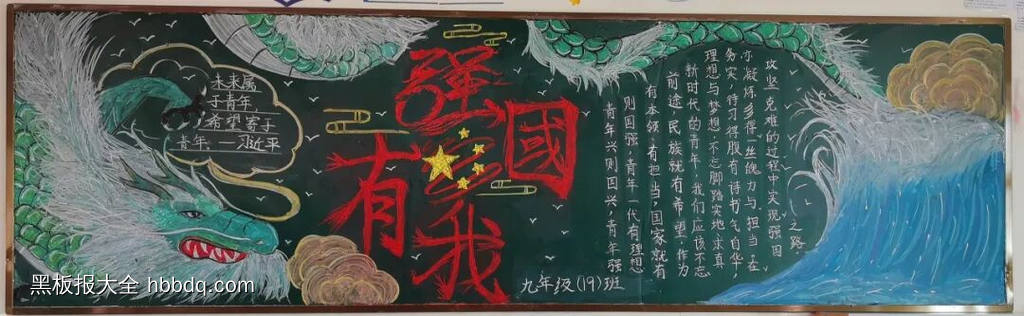 未来属
于青年
希望寄予
青年。—习近平
强國
有我
青年兴则国兴，青年强
则国强。青年一代有理想
有本领，有担当，国家就有
前途，民族就有希望。作为
新时代的青年，我们应该不忘
理想与梦想，不忘脚踏实地，求真
务实，待习得腹有诗书气自华，
亦凝炼多得一坐魄力与担当，在
攻坚克难的过程中实现强国
之路
九年级(19)班
黑板报大全 hbbdq.com